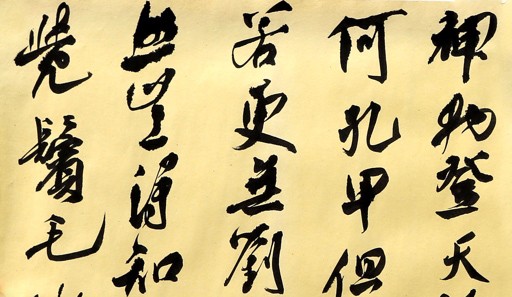 神物登天
何孔甲但
若更無劉
然豈得知
覺鬢毛